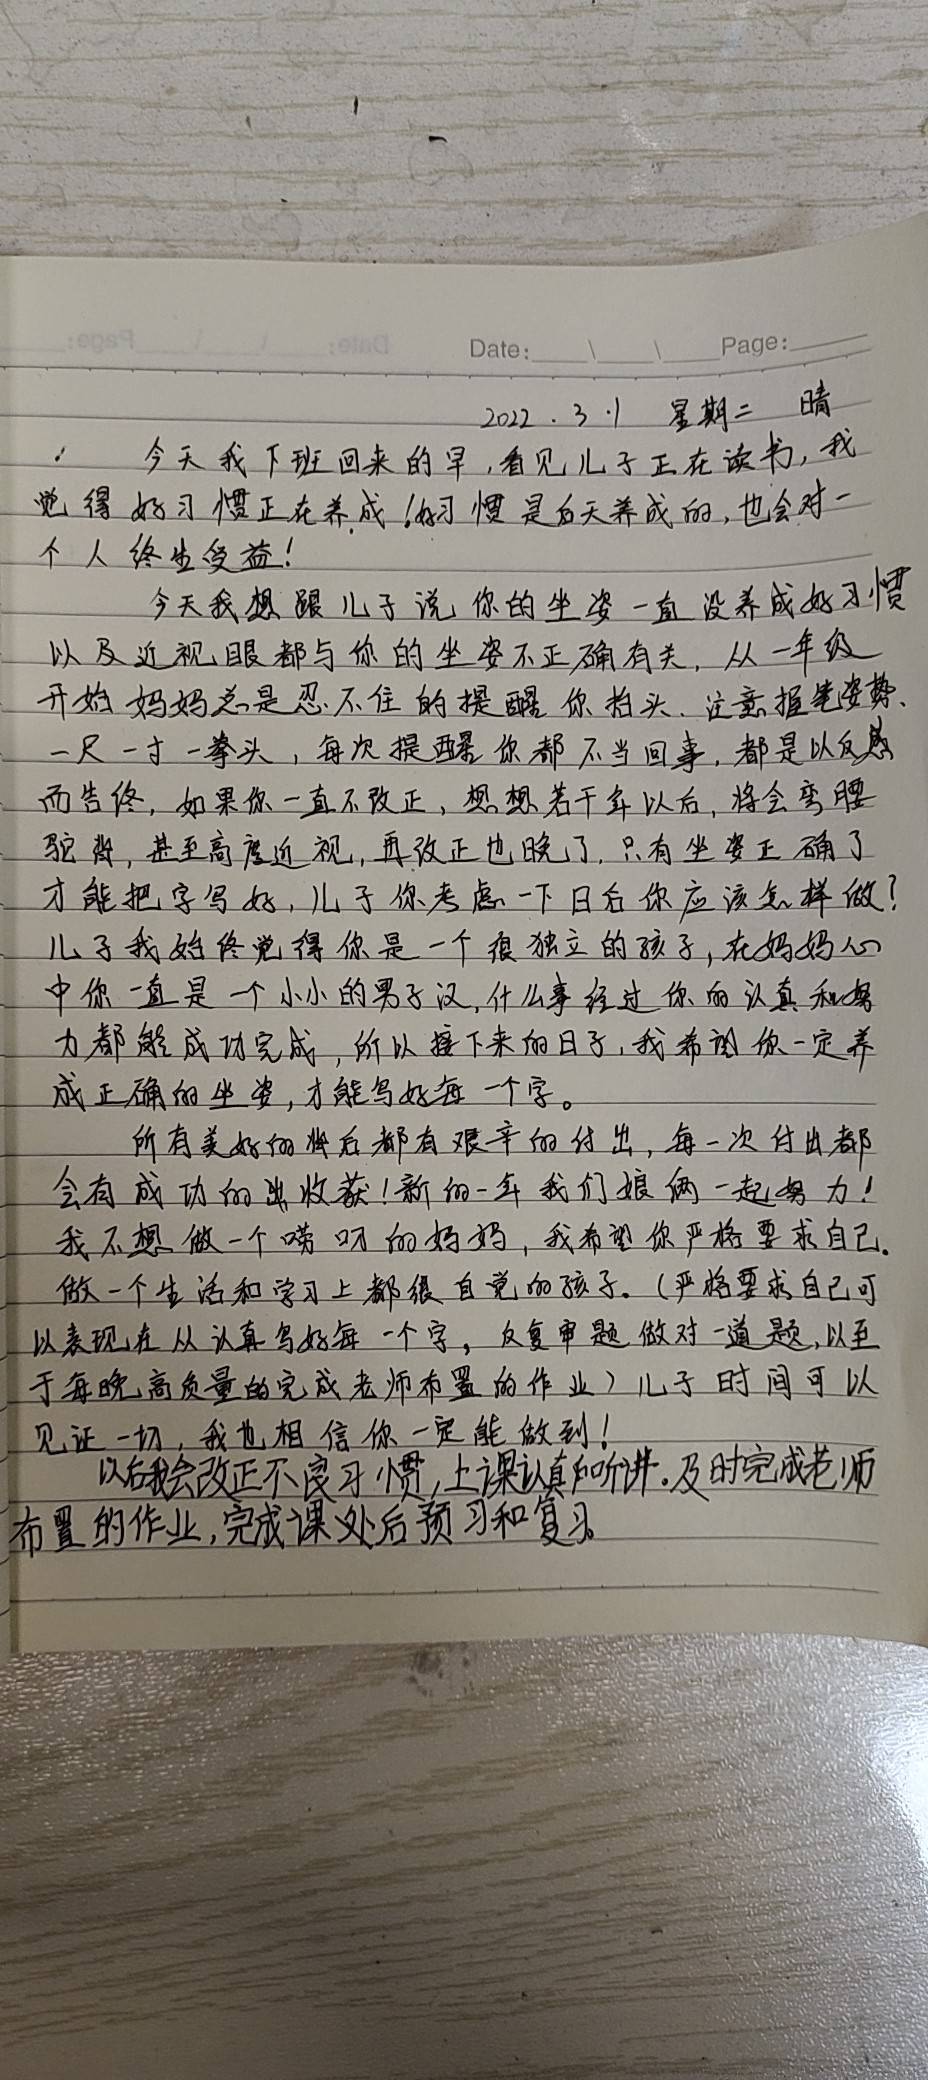 Date:____\____\____Page:____
2022.3.1 星期二 晴
今天我下班回来的早,看见儿子正在读书,我
觉得好习惯正在养成!好习惯是白天养成的,也会对一
个人终生受益!
今天我想跟儿子说你的坐姿一直没养成好习惯
以及近视眼都与你的坐姿不正确有关,从一年级
开始妈妈总是忍不住的提醒你抬头、注意握笔姿势、
一尺一寸一拳头,每次提醒你都不当回事,都是以反感
而告终,如果你一直不改正,想想若干年以后,将会弯腰
驼背,甚至高度近视,再改正也晚了,只有坐姿正确了
才能把字写好,儿子你考虑一下日后你应该怎样做?
儿子我始终觉得你是一个很独立的孩子,在妈妈心
中你一直是一个小小的男子汉,什么事经过你的认真和努
力都能成功完成,所以接下来的日子,我希望你一定养
成正确的坐姿,才能写好每一个字。
所有美好的背后都有艰辛的付出,每一次付出都
会有成功的收获!新的一年我们娘俩一起努力!
我不想做一个唠叨的妈妈,我希望你严格要求自己。
做一个生活和学习上都很自觉的孩子。(严格要求自己可
以表现在从认真写好每一个字,反复审题做对一道题,以至
于每晚高质量的完成老师布置的作业)儿子时间可以
见证一切,我也相信你一定能做到!
以后我会改正不良习惯,上课认真听讲.及时完成老师
布置的作业,完成课外后预习和复习。